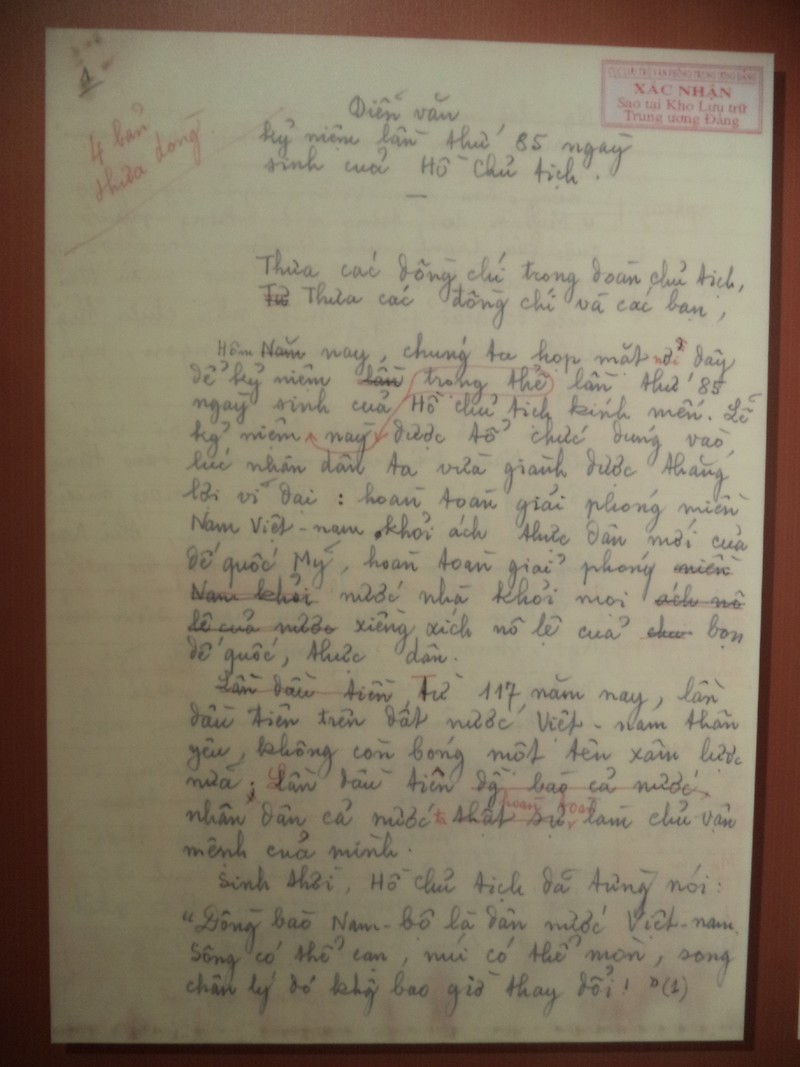 1
4 bản
thưa dòng.
CỤC LƯU TRỮ VĂN PHÒNG TRUNG ƯƠNG ĐẢNG
XÁC NHẬN
Sao tại Kho Lưu trữ
Trung ương Đảng
Diễn văn
kỷ niệm lần thứ 85 ngày
sinh của Hồ Chủ tịch.
Thưa các đồng chí trong đoàn chủ tịch,
Từ Thưa các đồng chí và các bạn,
Hôm Năm nay, chúng ta họp mặt nơi đây
để kỷ niệm lần trọng thể lần thứ 85
ngày sinh của Hồ Chủ tịch kính mến. Lễ
kỷ niệm này được tổ chức đúng vào
lúc nhân dân ta vừa giành được thắng
lợi vĩ đại: hoàn toàn giải phóng miền
Nam Việt-nam khỏi ách thực dân mới của
đế quốc Mỹ, hoàn toàn giải phóng miền
Nam khỏi nước nhà khỏi mọi ách nô
lệ của nước xiềng xích nô lệ của bọn
đế quốc, thực dân.
Lần đầu tiên Từ 117 năm nay, lần
đầu tiên trên đất nước Việt-nam thân
yêu, không còn bóng một tên xâm lược
nữa; Lần đầu tiên đg bào cả nước
nhân dân cả nước ta thật sự hoàn toàn làm chủ vận
mệnh của mình.
Sinh thời, Hồ Chủ tịch đã từng nói:
"Đồng bào Nam-bộ là dân nước Việt-nam.
Sông có thể cạn, núi có thể mòn, song
chân lý đó khg bao giờ thay đổi!" (1)